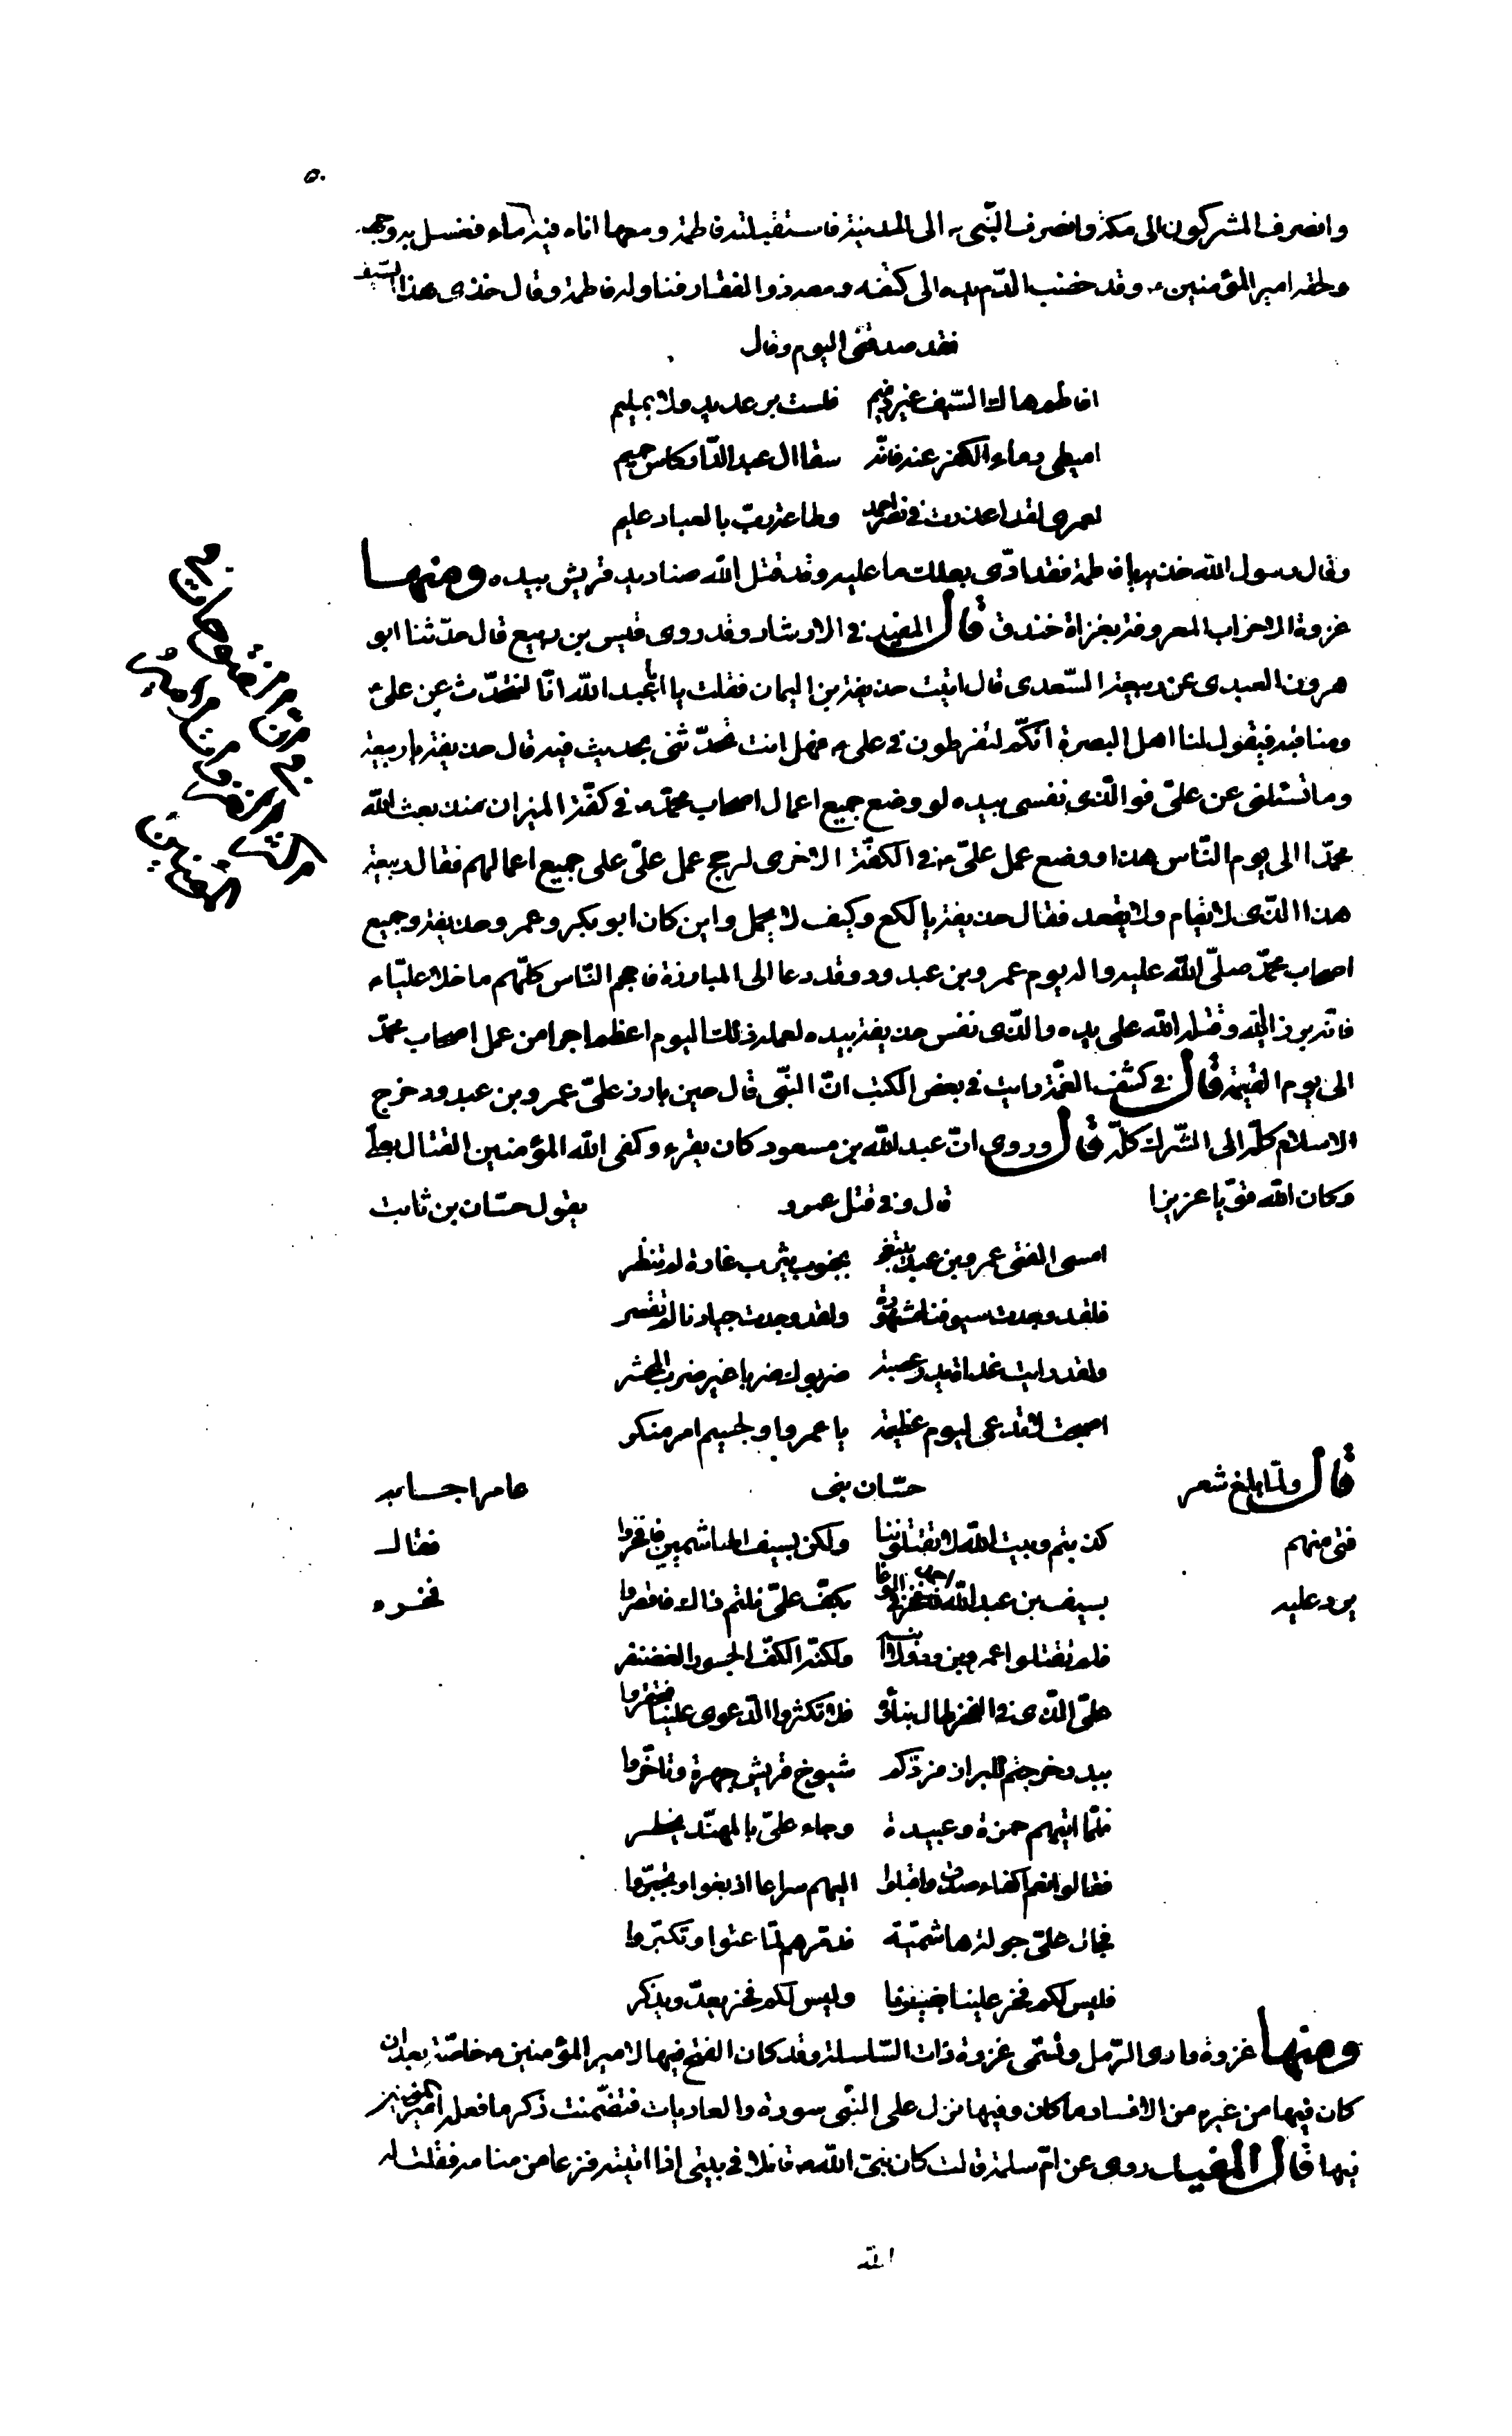 ٥٠
وانصرف المشركون الى مكة وانصرف النّبى ص الى المدينة فاستقبلته فاطمة ومعها اناء فيه ماء فغسل به وجهه
ولحقه امير المؤمنين ع وقد خضب الدّم يده الى كتفه ومعه ذوالفقار فناوله فاطمة وقال خذى هذا السّيف
فقد صدقنى اليوم وقال
افاطم هاك السّيف غير ذميم فلست برعديد ولا بمليم
اميطى دماء الكفر عنه فانّه سقا ال عبد الدّار كاس حميم
لعمرى لقد اعذرت فى نصر احمد وطاعة ربّ بالعباد عليم
وقال رسول الله خذيه يا فاطمة فقد ادّى بعلك ما عليه وقد قتل الله صناديد قريش بيده ومنها
غزوة الاحزاب المعروفة بغزاة خندق قال المفيد فى الارشاد وقد روى قيس بن ربيع قال حدّثنا ابو
هرون العبدى عن ربيعة السّعدى قال اتيت حذيفة بن اليمان فقلت يا ابا عبد الله انّا لنتحدّث عن على ع
ومناقبه فيقول لنا اهل البصرة انّكم لتفرطون فى على ع فهل انت تحدّثنى بحديث فيه قال حذيفة يا ربيعة
وما تسئلنى عن علىّ فوالّذى نفسى بيده لو وضع جميع اعمال اصحاب محمّد ص فى كفّة الميزان منذ بعث الله
محمّدا الى يوم النّاس هذا ووضع عمل علىّ ع فى الكفّة الاخرى لرجح عمل علىّ على جميع اعمالهم فقال ربيعة
هذا الّذى لا يقام ولا يقعد فقال حذيفة يالكع وكيف لا يحمل واين كان ابوبكر وعمر وحذيفة وجميع
اصحاب محمّد صلّى الله عليه واله يوم عمرو بن عبدود وقد دعا الى المبارزة فاحجم النّاس كلّهم ما خلا عليّا ع
فانّه برز اليه وقتله الله على يده والّذى نفس حذيفة بيده لعمله ذلك اليوم اعظم اجرا من عمل اصحاب محمّد
الى يوم القيمة قال فى كشف الغمّة رايت فى بعض الكتب انّ النبّى قال حين بارز علىّ عمرو بن عبدود خرج
الاسلام كلّه الى الشّرك كلّه قال وروى انّ عبد الله بن مسعود كان يقرء وكفى الله المؤمنين القتال بعلّى
وكان الله قويّا عزيزا قال وفى قتل عمرو يقول حسّان بن ثابت
امسى الفتى عمرو بن عبد يبتغى بجنوب يثرب غارة لم تنظر
فلقد وجدت سيوفنا مشهورة ولقد وجدت جيادنا لم تقصر
ولقد رايت غداة بدر عصبة ضربوك ضربا غير ضرب المحشر
اصبحت لا تدعى ليوم عظيمة يا عمرو او لجسيم امر منكر
قال ولمّا بلغ شعر حسّان بنى عامر اجابه
فتى منهم كذبتم وبيت الله لا تقتلوننا ولكن بسيف الهاشميين فافخروا فقال
يرد عليه بسيف بن عبد الله احمد فى الوغا بكفّ علىّ نلتم ذاك فاقصروا فخره
فلم تقتلوا عمرو بن ود ولا ابنه ولكنّه الكفّ الجسور الغضنفر
علىّ الّذى فى الفخر طال بناؤه فلا تكثروا الدّعوى علينا فتفخروا
ببدر خرجتم للبراز فردّكم شيوخ قريش جهرة وتاخّروا
فلمّا اتيهم حمزة وعبيدة وجاء علىّ بالمهنّد يخطر
فقالوا نعم اكفاء صدق واقبلوا اليهم سراعا اذ بغوا وتجبّروا
فجال علىّ جولة هاشميّة فدمّرهم لمّا عتوا وتكبّروا
فليس لكم فخر علينا بغيرنا وليس لكم فخر يعدّ ويذكر
ومنها غزوة وادى الرّمل وتسمّى غزوة ذات السّلسلة وقد كان الفتح فيها لامير المؤمنين ع خاصّة بعد ان
كان فيها من غيره من الافساد ما كان وفيها نزل على النّبّى سورة والعاديات فتضمّنت ذكر ما فعله امير المؤمنين
فيها قال المفيد روى عن امّ سلمة قالت كان نبىّ الله ص قائلا فى بيتى اذا انتبه فزعا من منامه فقلت له
الله